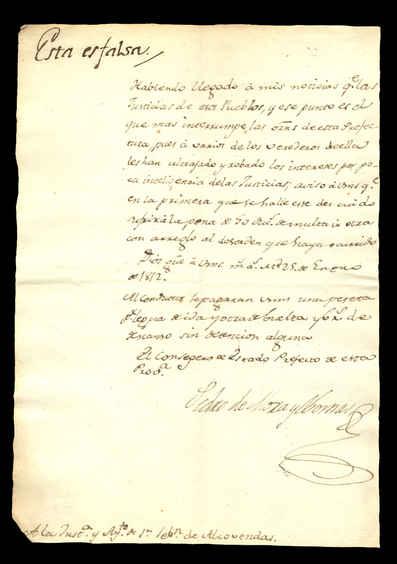 Esta es falsa.
Habiendo llegado á mis noticias q.e las
Justicias de esta Pueblos, y ese punto es el
que mas interrumpe las de esta Prefec
tura pues á varios de los verederos de ella
les han ultrajado y robado los intereses por po
ca inteligencia de las Justicias, aviso á Vms q.e
en la primera que se halle este descuido
la pena de 50 Du.s de multa
con arreglo al desorden que haya
Dios gũe á Vms m.s a.s M.d 25 de Enero
de 1812.
Al Conductor le pagaran Vms una peseta
legua de ida y otra de buelta y de
sin detencion alguna
El Consegero de Estado Prefecto de esta
Prov.a
Pedro de Mora y Lomas
A la Just.a y Ay.to de S.n Seb.n de Alcovendas.